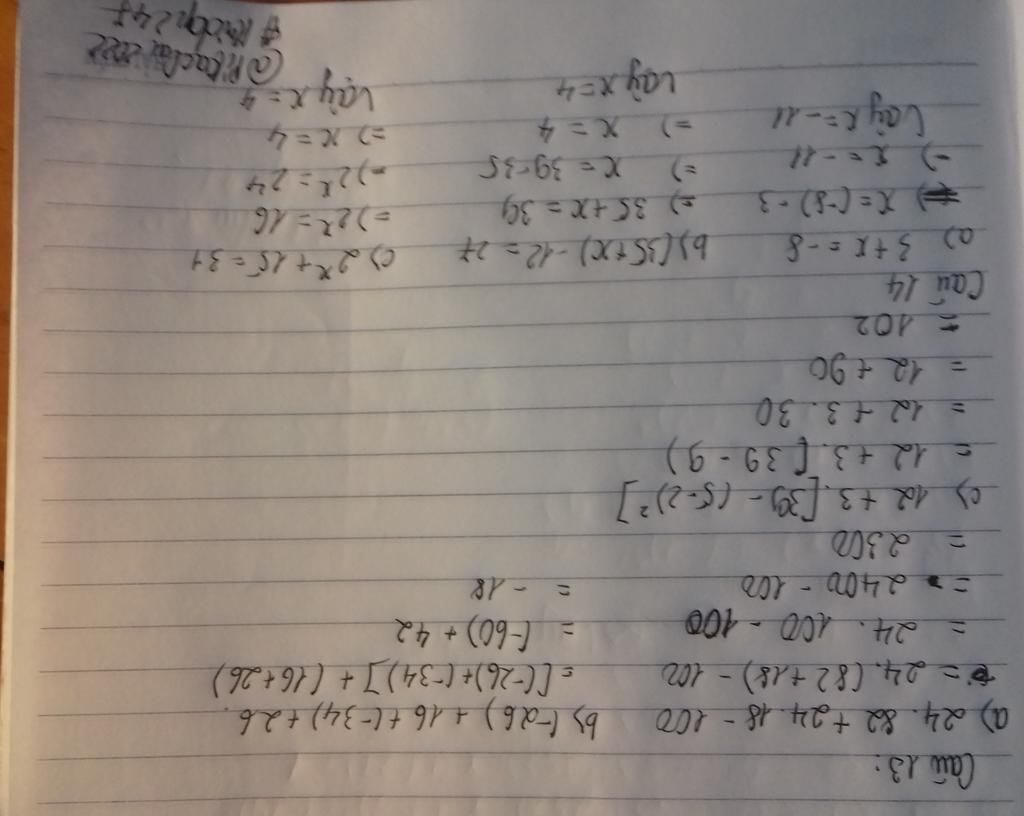 Câu 13:
a) 24. 82 + 24. 18 - 100 b) (-26) + 16 + (-34) + 26.
= 24. (82 + 18) - 100 = [(-26) + (-34)] + (16 + 26)
= 24. 100 - 100 = (-60) + 42
= 2400 - 100 = - 18
= 2300
c) 12 + 3. [39 - (5-2)²]
= 12 + 3. [39 - 9)
= 12 + 3. 30
= 12 + 90
= 102
Câu 14
a) 3 + x = - 8 b) (35 + x) - 12 = 27 c) 2ˣ + 15 = 31
=) x = (-8) - 3 =) 35 + x = 39 =) 2ˣ = 16
=) x = - 11 =) x = 39 - 35 =) 2ˣ = 24
Vậy x = - 11 =) x = 4 =) x = 4
Vậy x = 4 Vậy x = 4